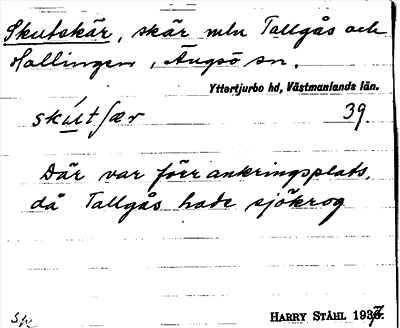 Skutskär, skär mln Tallgås och
Hallingen, Ängsö sn.
Yttertjurbo hd, Västmanlands län.
skutʃær 39.
Där var förr ankringsplats,
då Tallgås hade sjökrog
HARRY STÅHL 1937.